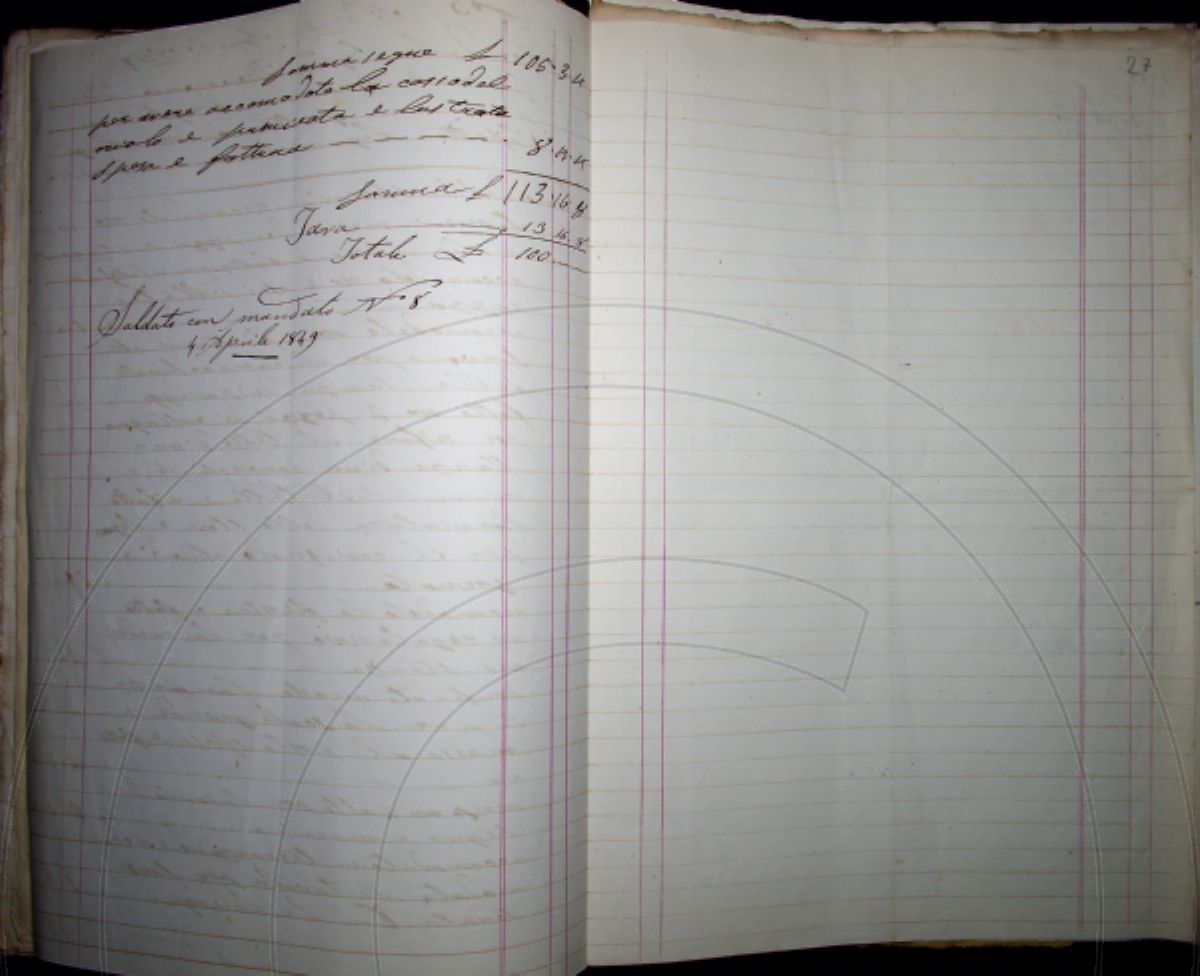 Somma segue £ 105.3.4
per avere accomodato la cassa del
violo e pumiciata e lustrata
spesa e fattura — — — — — 8.4.4
Somma £ 113.16.8
Tara 13.16.8
Totale £ 100 —
Saldato con mandato N 8
4 Aprile 1849
27